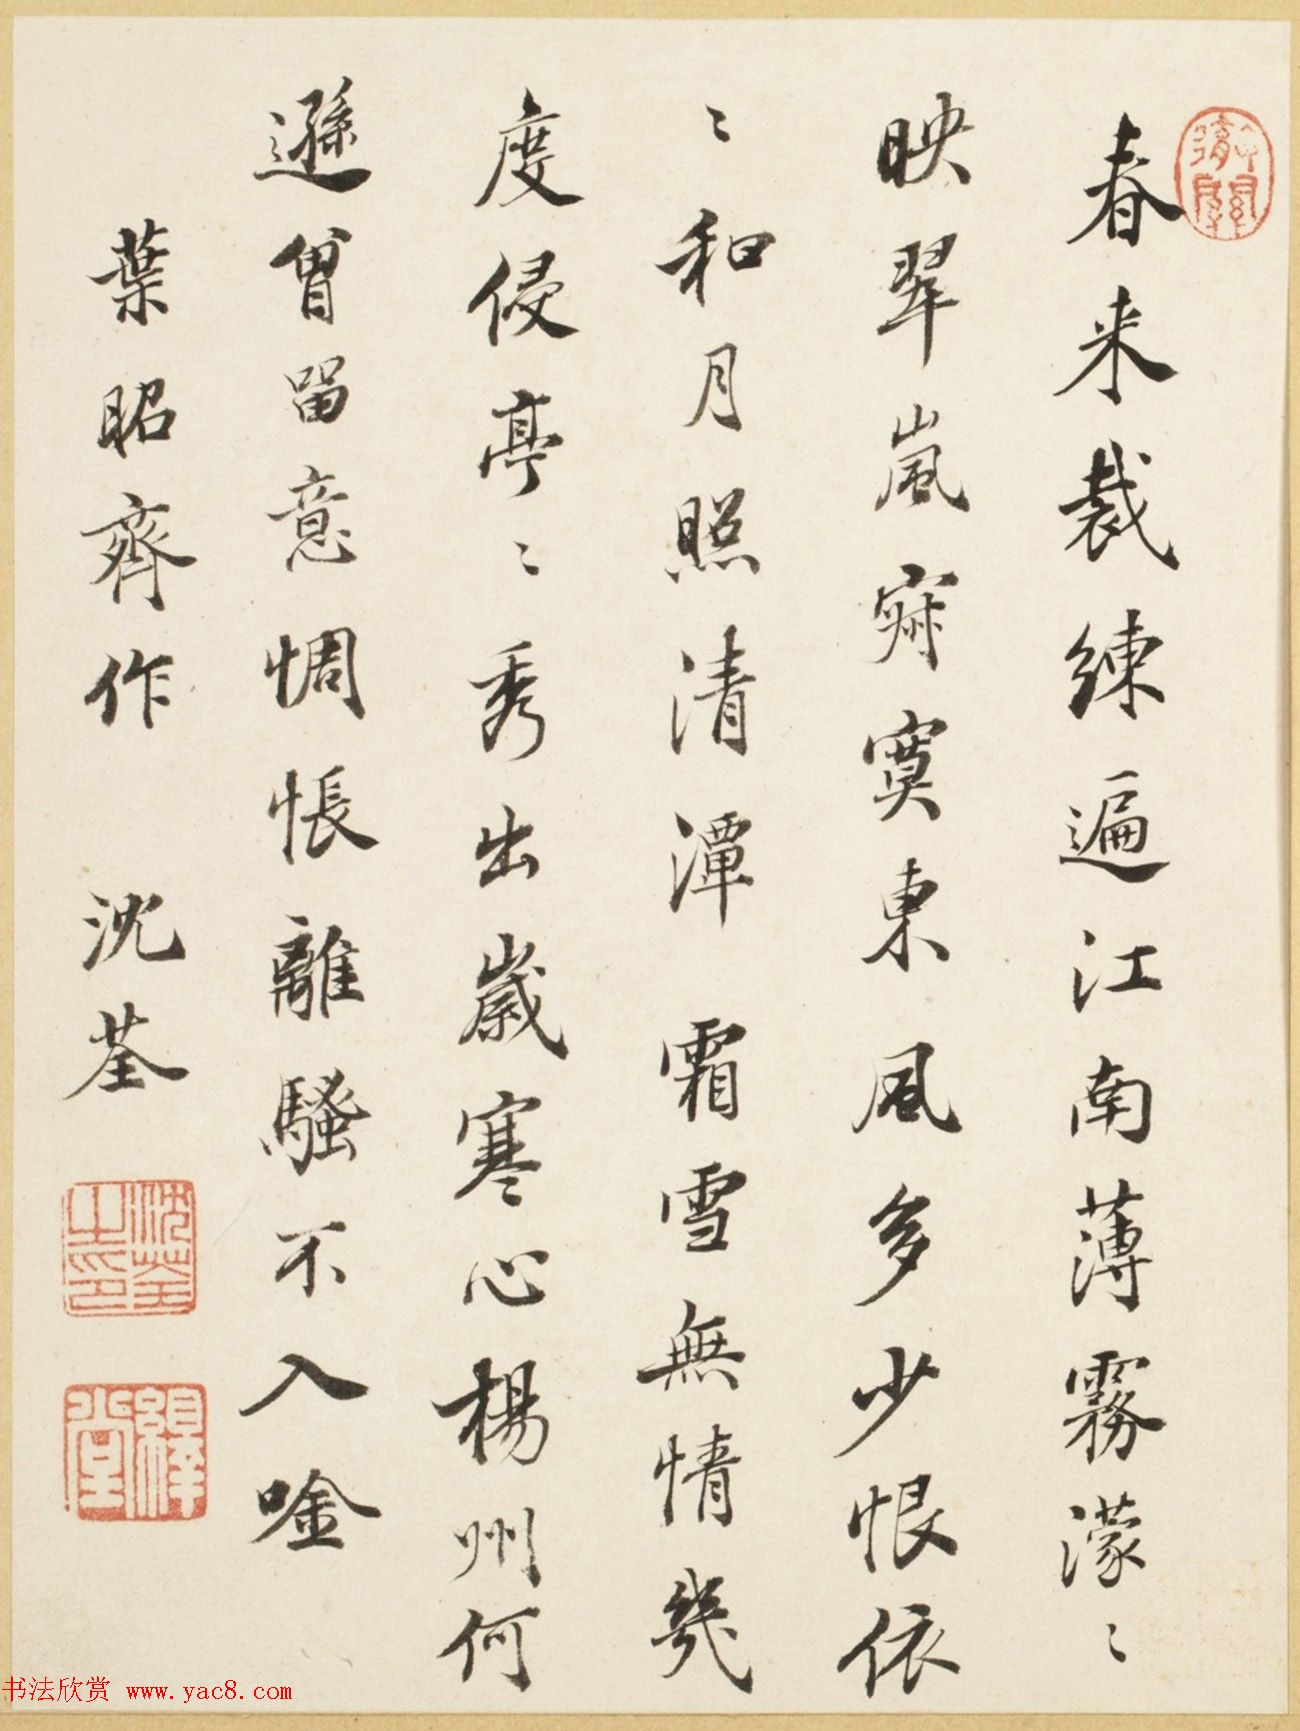 春来裁練遍江南薄霧濛〻
映翠嵐寂寞東風多少恨依
〻和月照清潭 霜雪無情幾
度侵亭〻秀出歲寒心楊州何
遜曾留意惆悵離騷不入唫
葉昭齊作 沈荃
沈荃之印
繹堂
书法欣赏 www.yac8.com